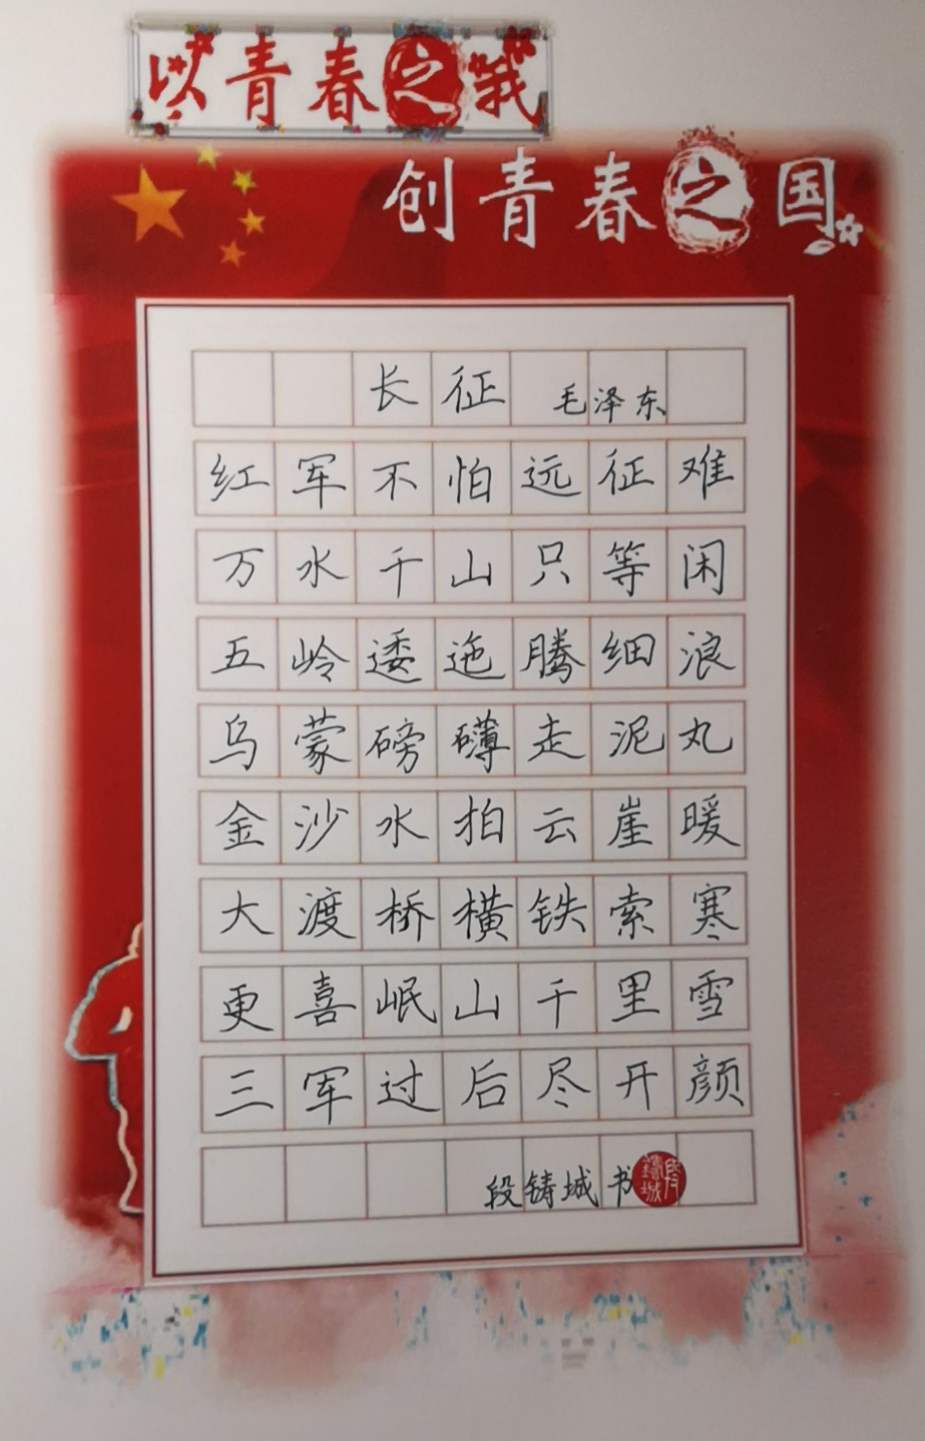 以青春之我
创青春之国
长征 毛泽东
红军不怕远征难
万水千山只等闲
五岭逶迤腾细浪
乌蒙磅礴走泥丸
金沙水拍云崖暖
大渡桥横铁索寒
更喜岷山千里雪
三军过后尽开颜
段铸城书
段铸城